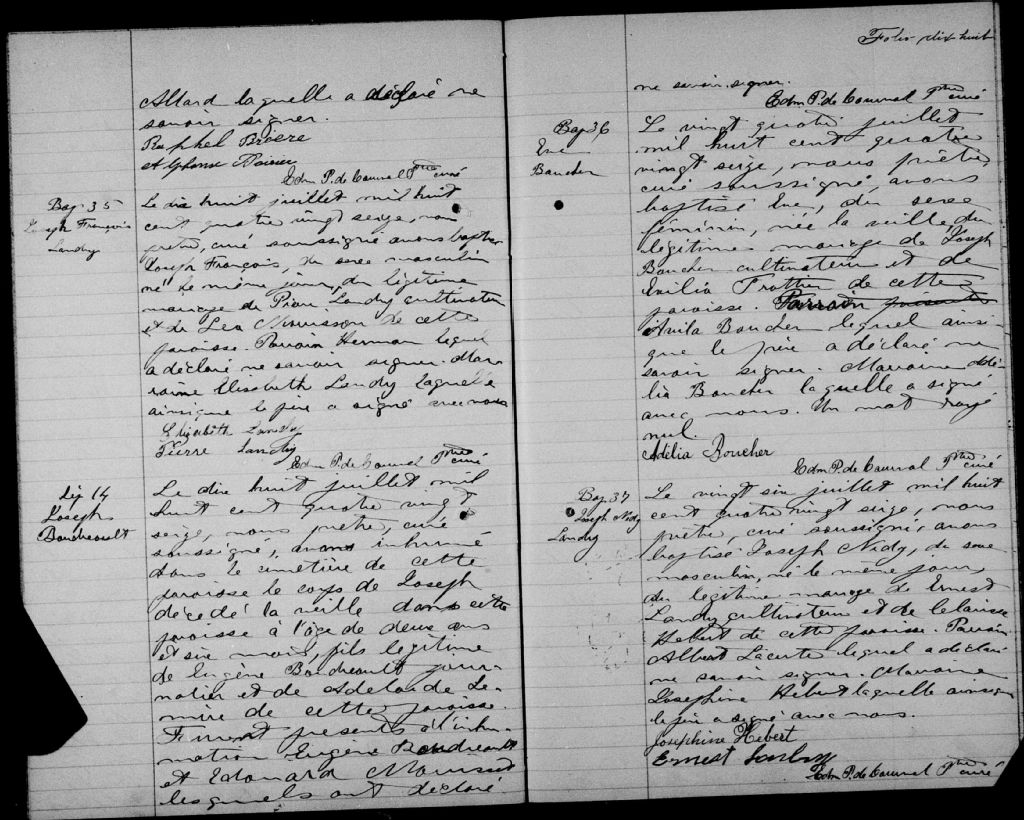 Allard laquelle a déclaré ne
savoir signer.
Raphel Brière
Alphonse Poirier
Edm P. de Courval Ptre curé
Bap 35
Joseph François
Landry
Le dix huit juillet mil huit
cent quatre vingt seize, nous
prêtre, curé soussigné avons baptisé
Joseph François, du sexe masculin
né le même jour, du légitime
mariage de Pierre Landry cultivateur
et de Lea de cette
paroisse. Parrain Herman lequel
a déclaré ne savoir signer. Mar-
raine Elisabeth Landry laquelle
ainsique le père a signé avec nous
Elizabeth Landry
Pierre Landry
Edm P. de Courval Ptre curé
Sép 14
Joseph
Boudreault
Le dix huit juillet mil
huit cent quatre vingt
seize, nous prêtre, curé
soussigné, avons inhumé
dans le cimetière de cette
paroisse le corps de Joseph
décédé la veille dans cette
paroisse à l'âge de deux ans
et six mois, fils légitime
de Eugène Boudreault jour-
nalier et de Adelaide Le-
mire de cette paroisse.
Furent présents à l'inhu-
mation Eugène Boudreault
et Edouard
lesquels ont déclaré
Folio dix huit
ne savoir signer.
Edm P. de Courval Ptre curé
Bap 36
Eve
Boucher
Le vingt quatre juillet
mil huit cent quatre
vingt seize, nous prêtre
curé soussigné, avons
baptisé Eve, du sexe
féminin, née la veille, du
légitime mariage de Joseph
Boucher cultivateur et de
Emilia Trottier de cette
paroisse. Parrain
Avila Boucher lequel ainsi-
que le père a déclaré ne
savoir signer. Marraine Adé-
lia Boucher laquelle a signé
avec nous. Un mot rayé
nul.
Adélia Boucher
Edm P. de Courval Ptre curé
Bap 37
Joseph Nidy
Landry
Le vingt six juillet mil huit
cent quatre vingt seize, nous
prêtre, curé soussigné, avons
baptisé Joseph Nidy, du sexe
masculin, né le même jour,
du légitime mariage de Ernest
Landry cultivateur et de Clarisse
Hebert de cette paroisse. Parrain
Albert Lacerte lequel a déclaré
ne savoir signer. Marraine
Josephine Hébert laquelle ainsique
le père a signé avec nous.
Josephine Hebert
Ernest Landry
Edm P. de Courval Ptre curé